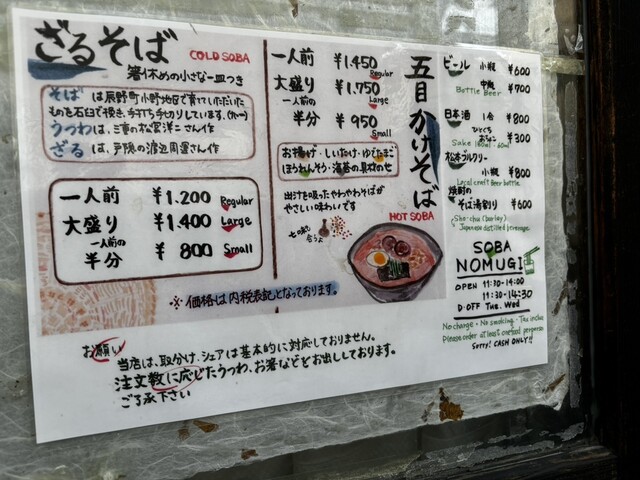 ざるそば COLD SOBA
箸休めの小さな一皿つき
そば は辰野町小野地区で育てしただいた
ものを石臼で挽き、手打ち手切りしています。
うつわは、三重の松宮洋二さん作
ざる は、戸隠の渡辺周運さん作
一人前 ¥1.200 Regular
大盛り ¥1.400 Large
一人前の
半分 ¥ 800 Small
五目かけそば
HOT SOBA
一人前 ¥1.450
Regular
大盛り ¥1.750
Large
一人前の
半分 ¥ 950
Small
お揚げ・しいたけ・ゆでたまご
ほうれんそう・海苔の具材のせ
出汁を吸ったやわやわそばが
やさしい味わいです
七味も
合うよ
※価格は内税表記となっております。
ビール 小瓶 ¥600
中瓶 ¥700
Bottle Beer
日本酒 1合 ¥800
ひとくち
おちょこ ¥300
Sake 180ml・60ml
松本ブルワリー
小瓶 ¥800
Local craft beer bottle
焼酎の
そば湯割り ¥600
Sho-chu (barley)
Japanese distilled beverage
SOBA
NOMUGI
OPEN 11:30-14:00
11:30-14:30
D・OFF Tue. Wed
No charge・No smoking・Tax inclue
Please order at least one food per person
Sorry! CASH ONLY!!
お願い
当店は、取分け、シェアは基本的に対応しておりません。
注文数に応じたうつわ、お箸などをお出ししております。
ご了承下さい